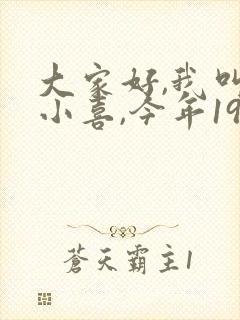 大家好,我叫
小喜,今年19
蒼天霸主1